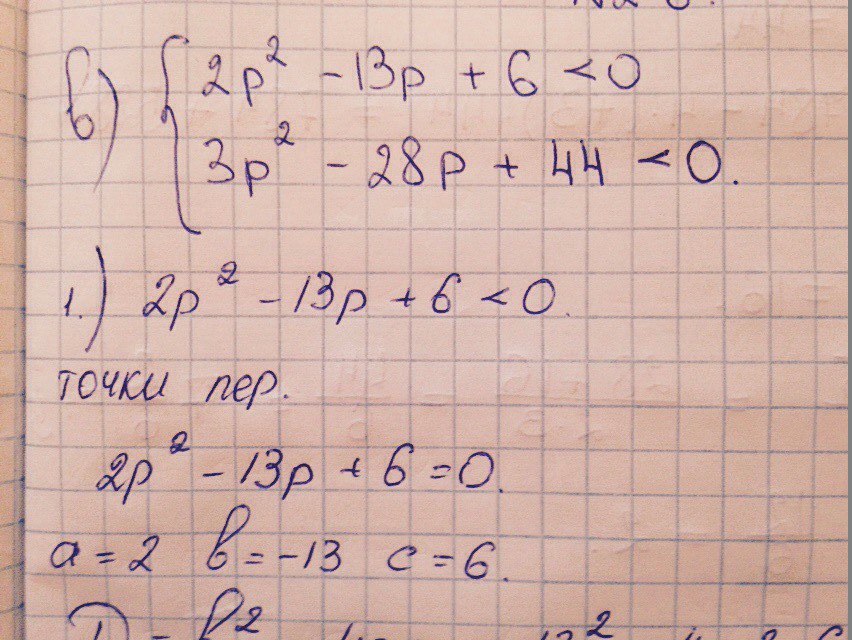 б) { 2p² - 13p + 6 < 0
3p² - 28p + 44 < 0.
1.) 2p² - 13p + 6 < 0.
точки пер.
2p² - 13p + 6 = 0.
a = 2 b = -13 c = 6.